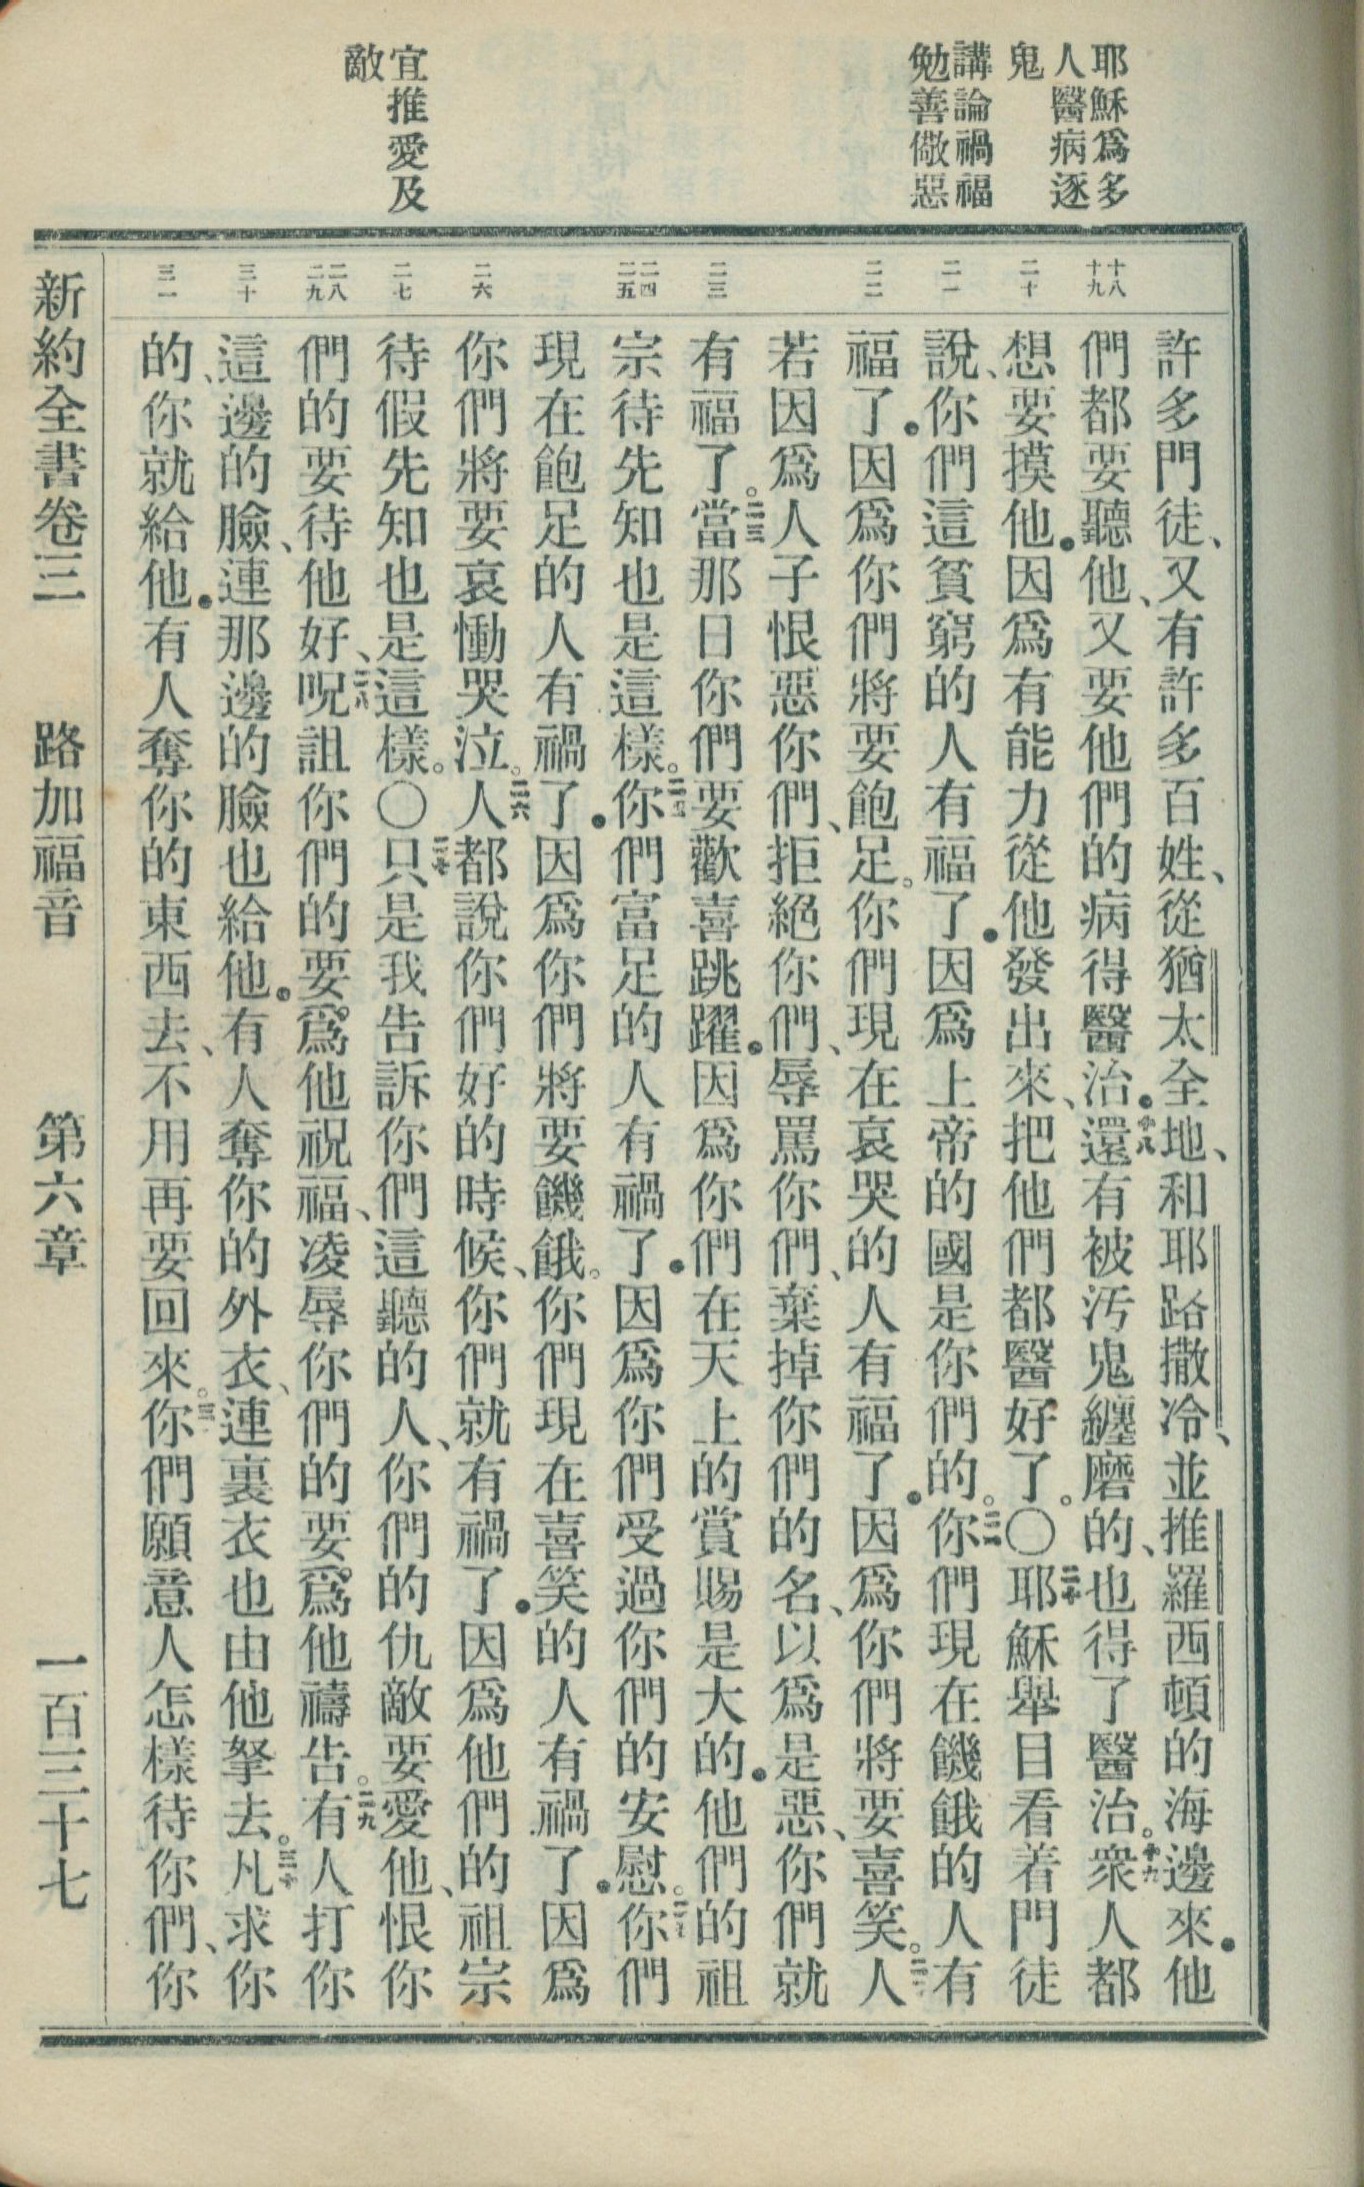 耶穌爲多
人醫病逐
鬼
講論禍福
勉善儆惡
宜推愛及
敵
十八
十九
二十
二一
二二
二三
二四
二五
二六
二七
二八
二九
三十
三一
許多門徒、又有許多百姓、從猶太全地、和耶路撒冷、並推羅西頓的海邊來．他
們都要聽他、又要他們的病得醫治．十八還有被汚鬼纏磨的、也得了醫治。十九衆人都
想要摸他．因爲有能力從他發出來、把他們都醫好了。〇二十耶穌舉目看着門徒
說、你們這貧窮的人有福了．因爲上帝的國是你們的。二一你們現在饑餓的人有
福了．因爲你們將要飽足。你們現在哀哭的人有福了．因爲你們將要喜笑。二二人
若因爲人子恨惡你們、拒絕你們、辱罵你們、棄掉你們的名、以爲是惡、你們就
有福了。二三當那日你們要歡喜跳躍．因爲你們在天上的賞賜是大的．他們的祖
宗待先知也是這樣。二四你們富足的人有禍了．因爲你們受過你們的安慰。二五你們
現在飽足的人有禍了．因爲你們將要饑餓。你們現在喜笑的人有禍了．因爲
你們將要哀慟哭泣。二六人都說你們好的時候、你們就有禍了．因爲他們的祖宗
待假先知也是這樣。〇二七只是我告訴你們這聽的人、你們的仇敵要愛他、恨你
們的要待他好、二八呪詛你們的要爲他祝福、凌辱你們的要爲他禱告。二九有人打你
這邊的臉、連那邊的臉也給他．有人奪你的外衣、連裏衣也由他拏去。三十凡求你
的、你就給他．有人奪你的東西去、不用再要回來。三一你們願意人怎樣待你們、你
新約全書卷三　路加福音　第六章　一百三十七